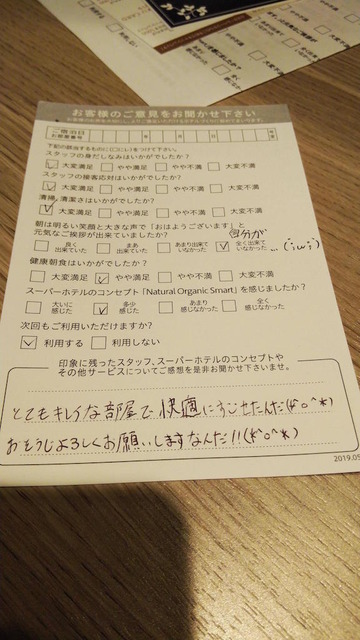 お客様のご意見をお聞かせ下さい
ご宿泊日
お部屋番号
年 月 日 号室
下記の該当するものに(□に✓)をつけて下さい。
スタッフの身だしなみはいかがでしたか?
✓大変満足 □やや満足 □やや不満 □大変不満
スタッフの接客応対はいかがでしたか?
✓大変満足 □やや満足 □やや不満 □大変不満
清掃、清潔さはいかがでしたか?
✓大変満足 □やや満足 □やや不満 □大変不満
朝は明るい笑顔と大きな声で「おはようございます」と
元気なご挨拶が出来ていましたか? 自分が
□良く出来ていた □まあ出来ていた □あまり出来ていなかった ✓全く出来ていなかった …(´;ω;`)
健康朝食はいかがでしたか?
□大変満足 ✓やや満足 □やや不満 □大変不満
スーパーホテルのコンセプト「Natural Organic Smart」を感じましたか?
□大いに感じた ✓多少感じた □あまり感じなかった □全く感じなかった
次回もご利用いただけますか?
✓利用する □利用しない
印象に残ったスタッフ、スーパーホテルのコンセプトや
その他サービスについてご感想を是非お聞かせ下さいませ。
とてもキレイな部屋で快適にすごせたんだ(*^o^*)
おそうじよろしくお願いしますなんだ!!(*^o^*)
2019.05